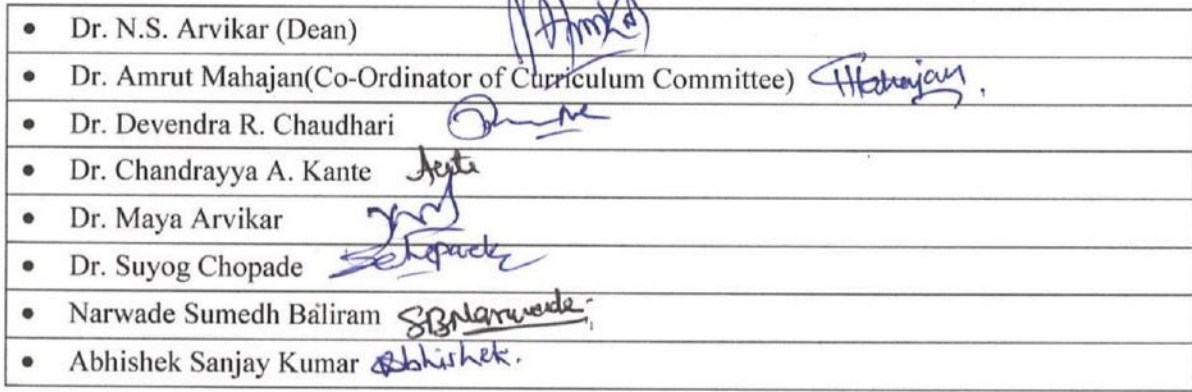 • Dr. N.S. Arvikar (Dean)
• Dr. Amrut Mahajan(Co-Ordinator of Curriculum Committee) Mahajan,
• Dr. Devendra R. Chaudhari
• Dr. Chandrayya A. Kante
• Dr. Maya Arvikar
• Dr. Suyog Chopade
• Narwade Sumedh Baliram SBNarwade
• Abhishek Sanjay Kumar Abhishek.